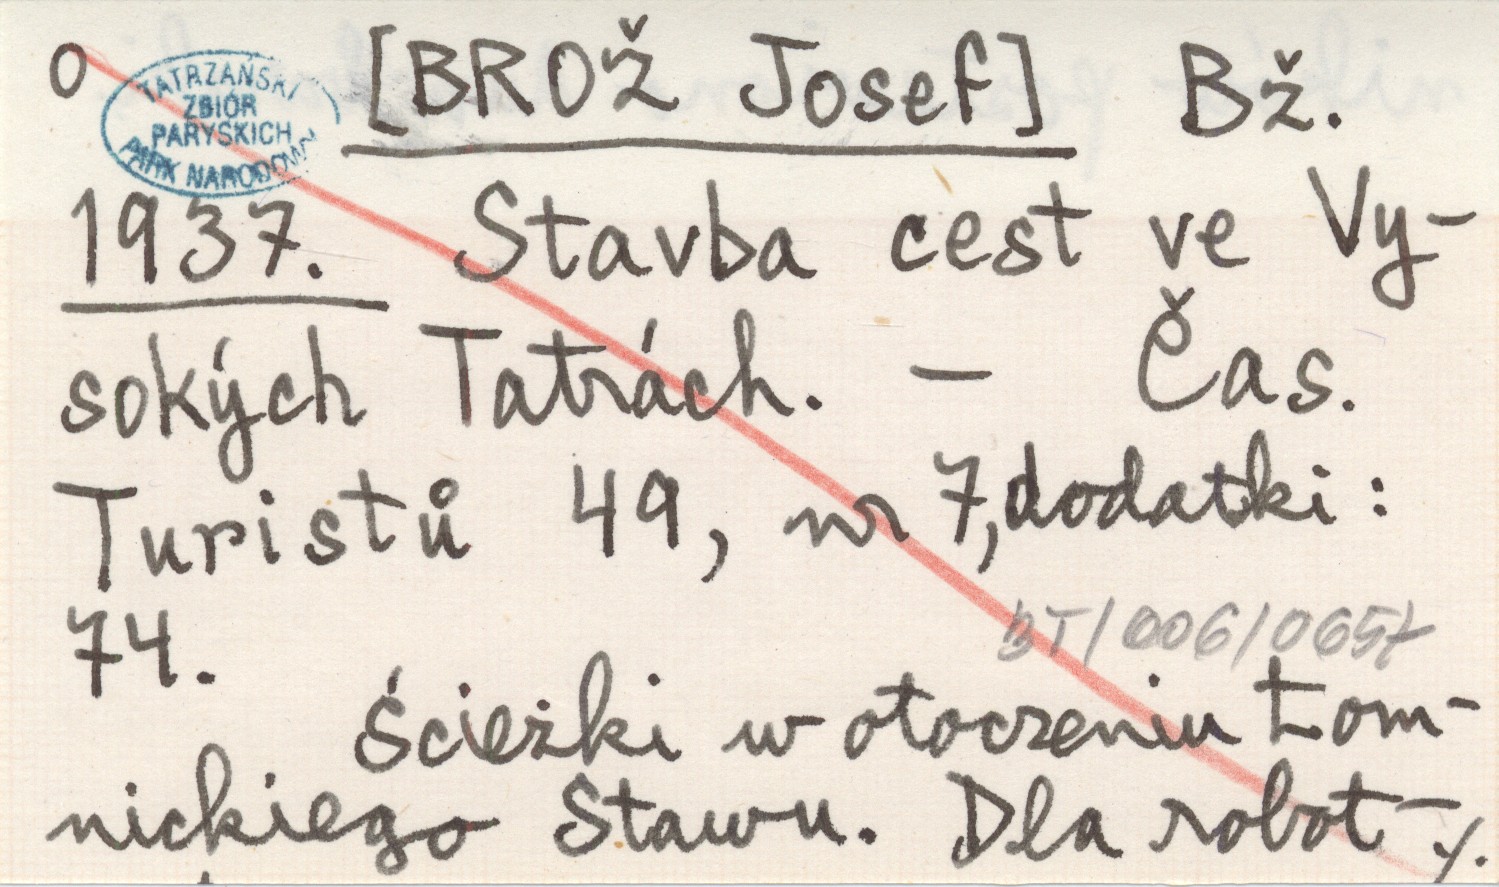 O [BROŽ Josef] Bž.
TATRZAŃSKI
ZBIÓR
PARYSKICH
PARK NARODOWY
1937. Stavba cest ve Vy-
sokých Tatrách. — Čas.
Turistů 49, nr 7, dodatki:
74.
BT/006/0657
Ścieżki w otoczeniu Łom-
nickiego Stawu. Dla robot-
./.